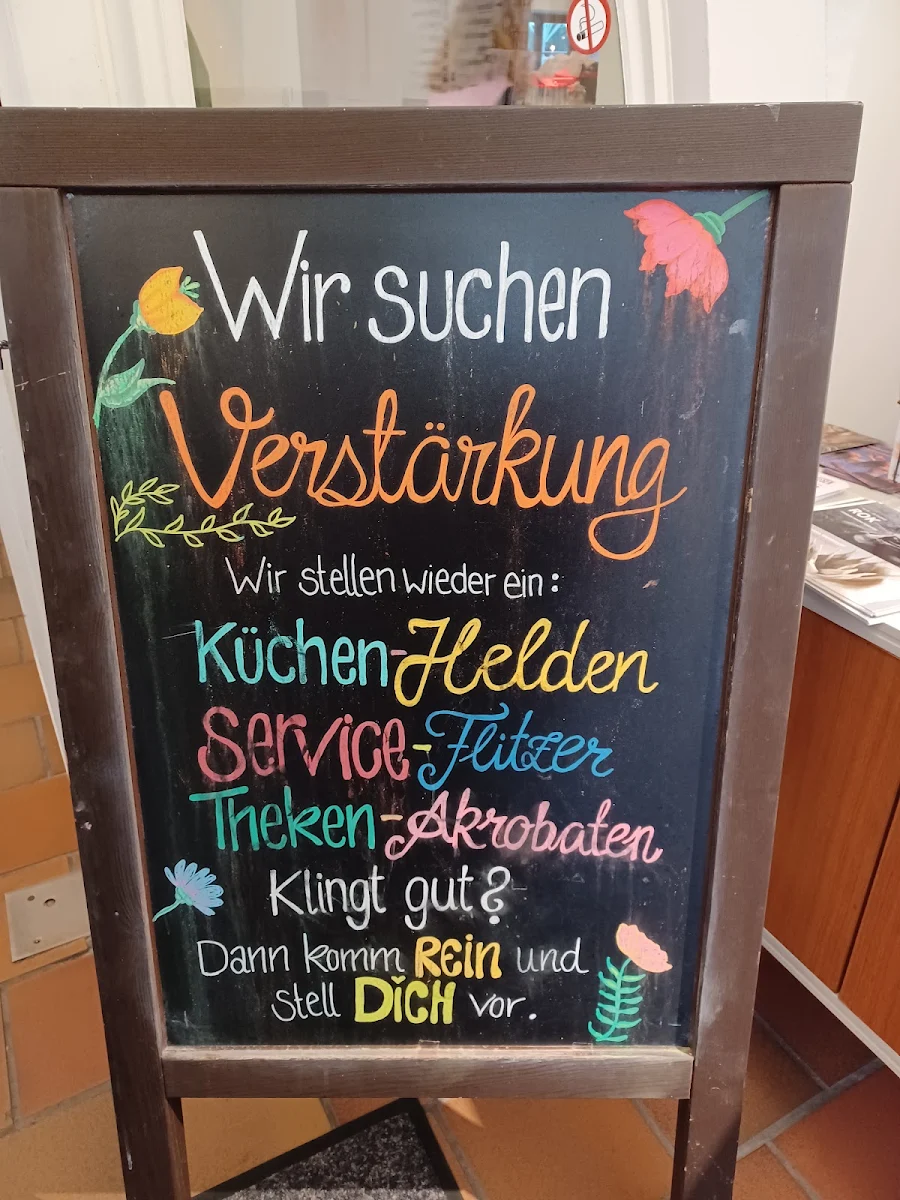 Wir suchen
Verstärkung
Wir stellen wieder ein:
Küchen-Helden
Service-Flitzer
Theken-Akrobaten
Klingt gut?
Dann komm REIN und
stell DICH vor.